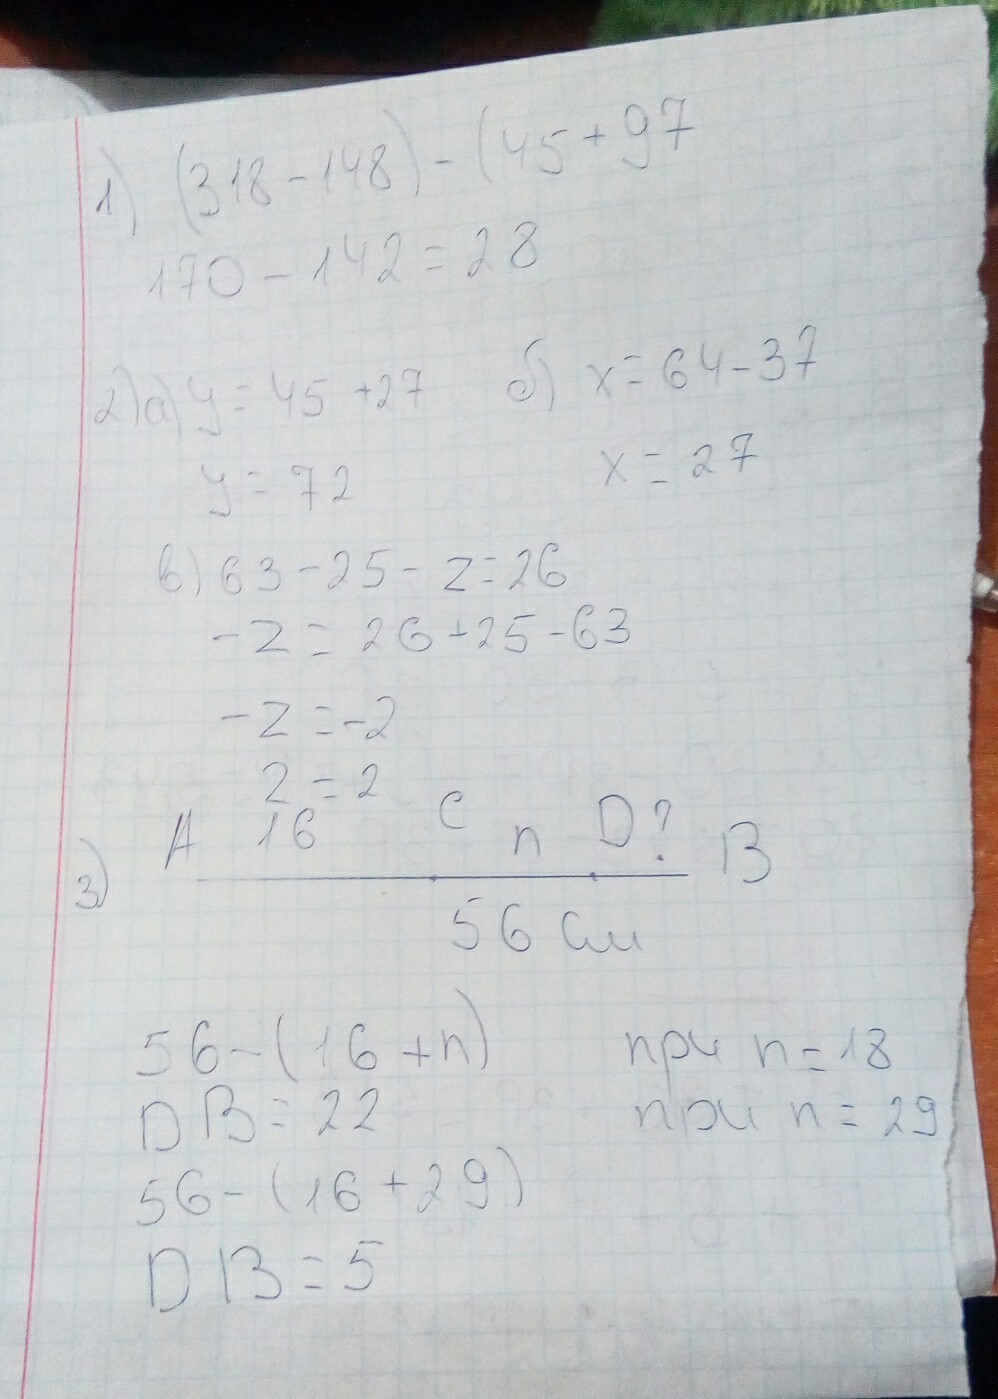 1) (318-148)-(45+97
170-142=28
2) а) y=45+27 б) x=64-37
y=72 x=27
в) 63-25-z=26
-z=26+25-63
-z=-2
z=2
3) A 16 C n D? B
56 см
56-(16+n) при n=18
DB=22 при n=29
56-(16+29)
DB=5